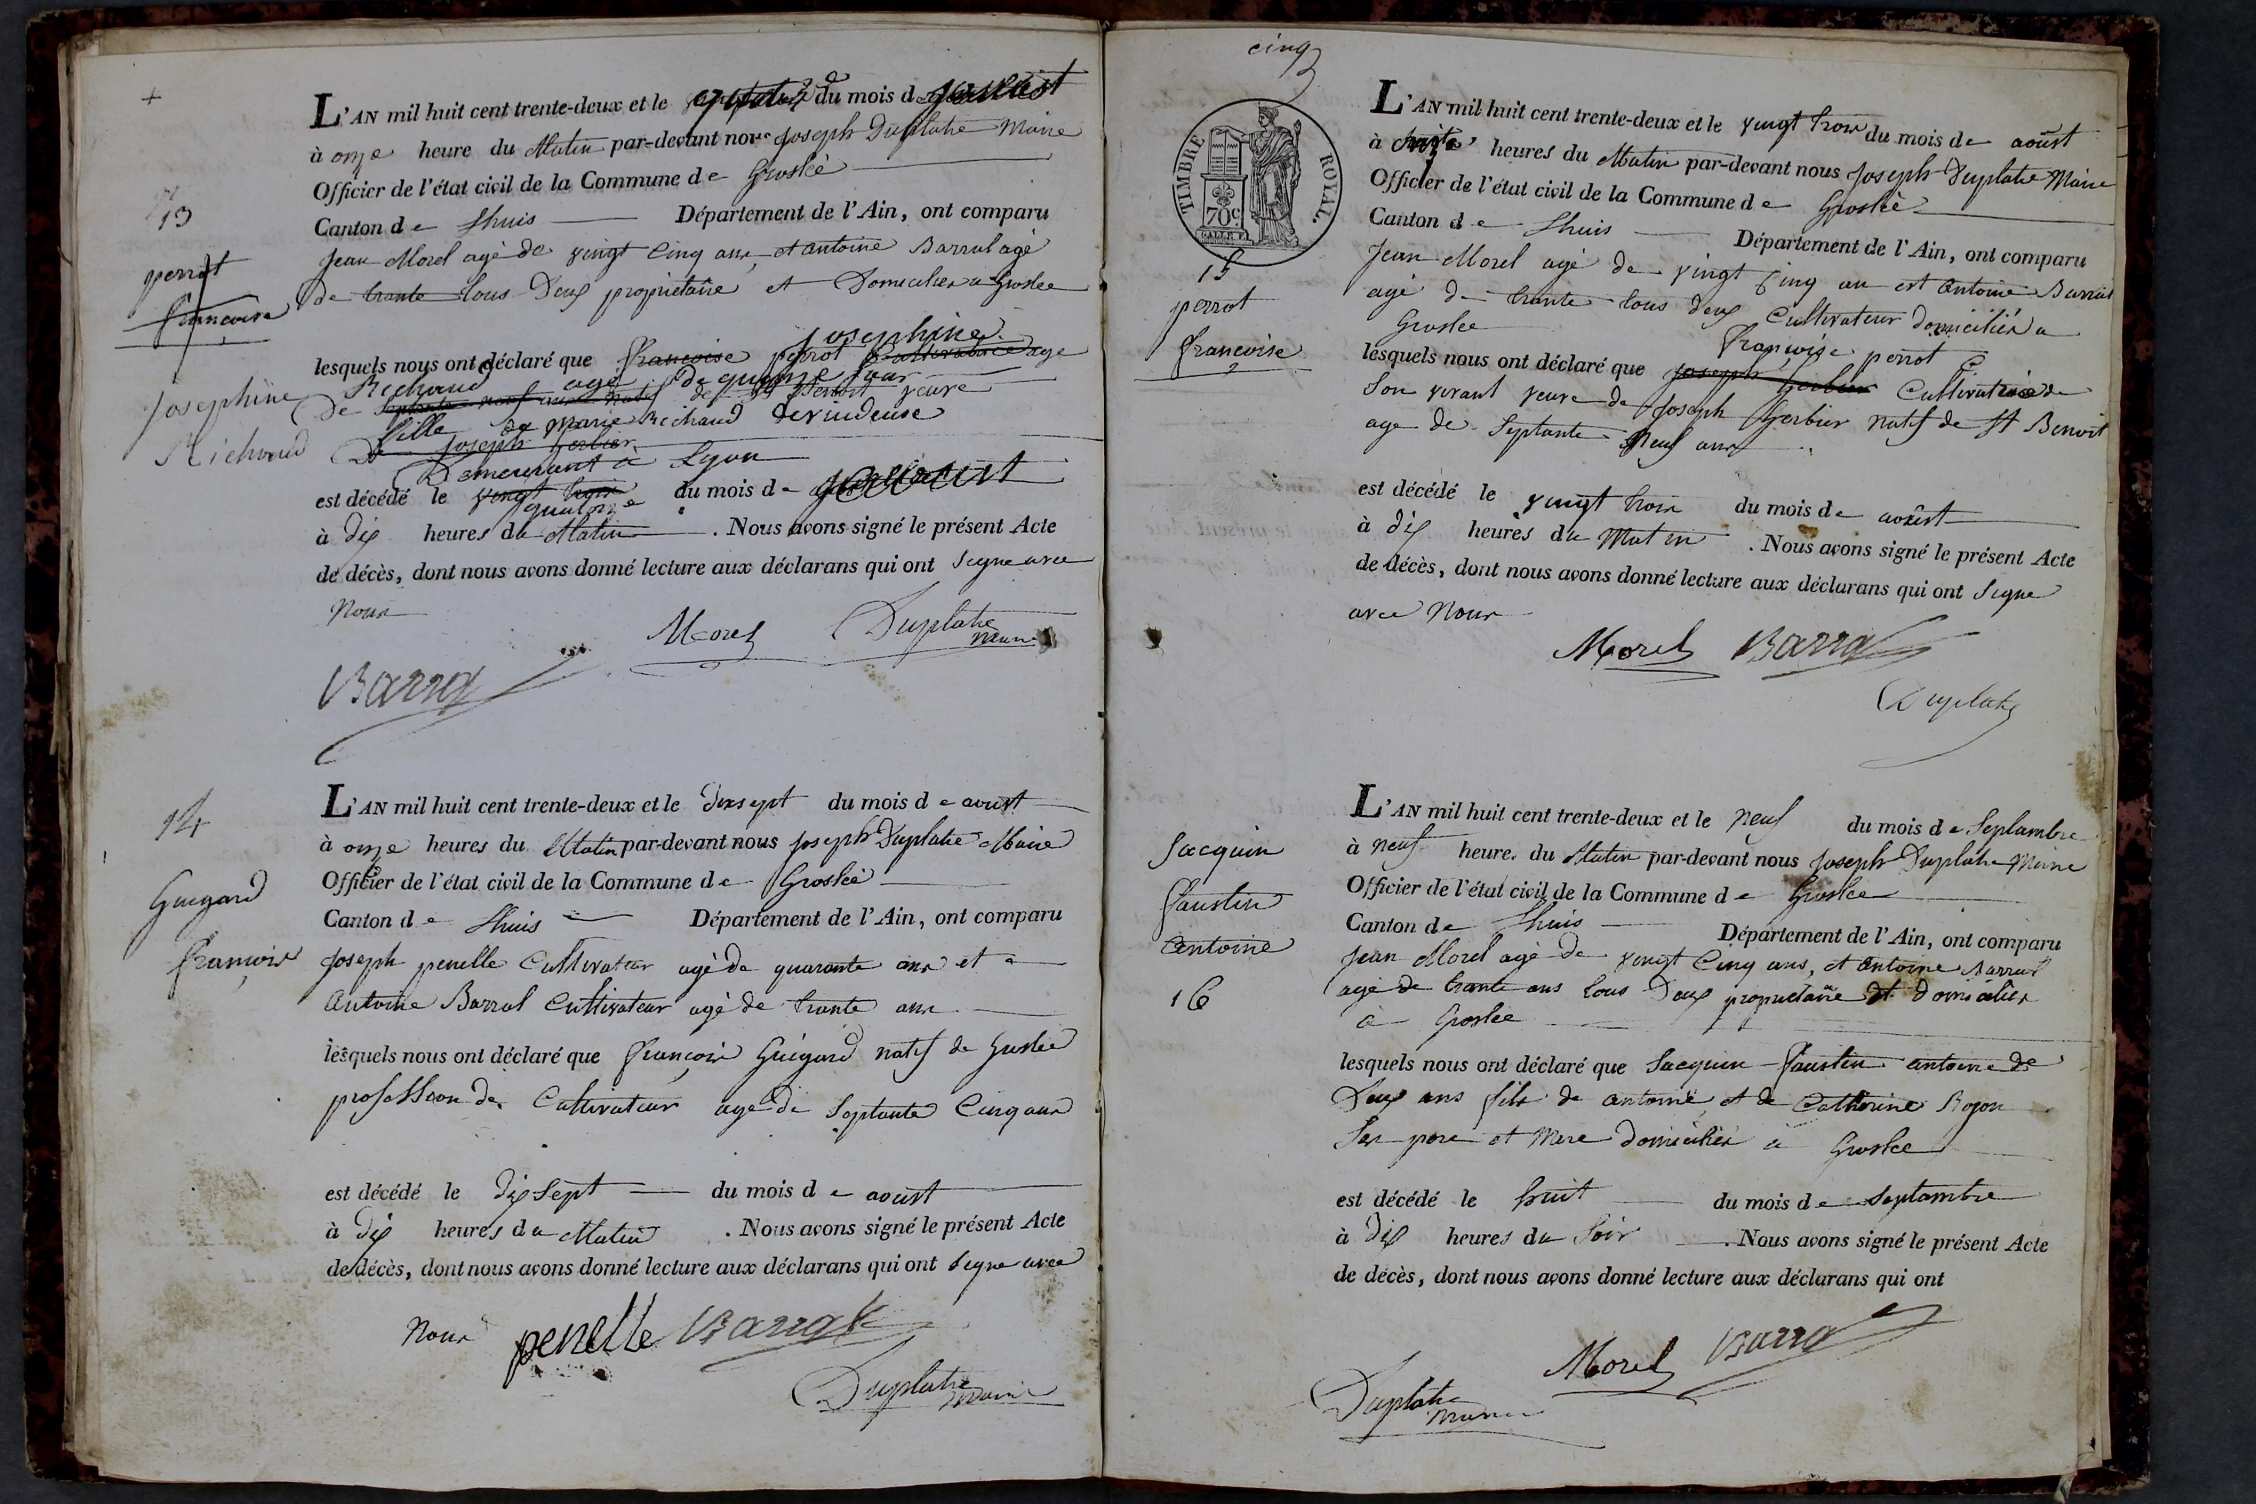 +
13
perrot
françoise
Josephine
Richaud
L'AN mil huit cent trente-deux et le du mois de
à onze heure du Matin par-devant nous Joseph Duplatre Maire
Officier de l'état civil de la Commune de Groslée
Canton de Lhuis Département de l'Ain, ont comparu
Jean Morel agé de vingt cinq ans et antoine Barral agé
de trante tous Deux proprietaire et Domiciliés a Groslee
Josephine
lesquels nous ont déclaré que françoise perrot Cultivatrice age
Richaud agé de quinze jour
de Septante neuf ans natif de St Benoit veuve
fille de Marie Richaud devindeuse
De Joseph Gerbier
Demeurant à Lyon
est décédé le vingt trois du mois de
quatorze
à dix heures du Matin . Nous avons signé le présent Acte
de décès, dont nous avons donné lecture aux déclarans qui ont signe avec
Nous
Morel Duplatre
Maire
Barral
14
Guigard
françois
L'AN mil huit cent trente-deux et le dixsept du mois de aoust
à onze heures du Matin par-devant nous Joseph Duplatre Maire
Officier de l'état civil de la Commune de Groslée
Canton de Lhuis Département de l'Ain, ont comparu
Joseph penelle Cultivateur agé de quarante ans et
Antoine Barral Cultivateur agé de trante ans
lesquels nous ont déclaré que françois Guigard natif de Groslée
profession de Cultivateur agé de Septante Cinq ans
est décédé le dix Sept du mois de aoust
à Dix heures du Matin . Nous avons signé le présent Acte
de décès, dont nous avons donné lecture aux déclarans qui ont signe avec
Nous penelle Barral
Duplatre
Maire
cinq
TIMBRE ROYAL.
70c
15
perrot
francoise
L'AN mil huit cent trente-deux et le vingt trois du mois de aoust
à heures du Matin par-devant nous Joseph Duplatre Maire
Officier de l'état civil de la Commune de Groslée
Canton de Lhuis Département de l'Ain, ont comparu
Jean Morel agé de vingt Cinq an est Antoine Barral
agé de trante tous deux Cultivateur domiciliés a
Groslee
françoise perrot
lesquels nous ont déclaré que Joseph Gerbier Cultivatrice de
Son vivant veuve de Joseph Gerbier natif de St Benoit
age de Septante Neuf ans
est décédé le vingt trois du mois de aoust
à dix heures du Matin . Nous avons signé le présent Acte
de décès, dont nous avons donné lecture aux déclarans qui ont signe
avec Nous
Morel Barral
Duplatre
Jacquin
faustin
antoine
16
L'AN mil huit cent trente-deux et le Neuf du mois de Septambre
à neuf heures du Matin par-devant nous Joseph Duplatre Maire
Officier de l'état civil de la Commune de Groslee
Canton de Lhuis Département de l'Ain, ont comparu
Jean Morel agé de vingt Cinq ans, et Antoine Barral
agé de trante ans tous Deux proprietaire et domicilies
à Groslee
lesquels nous ont déclaré que Jacquin faustin antoine de
Deux ans fils de antoine et de Catherine Rojon
Ses pere et Mere domiciliés à Groslee
est décédé le huit du mois de Septambre
à Dix heures du Soir . Nous avons signé le présent Acte
de décès, dont nous avons donné lecture aux déclarans qui ont
Morel Barral
Duplatre
Maire